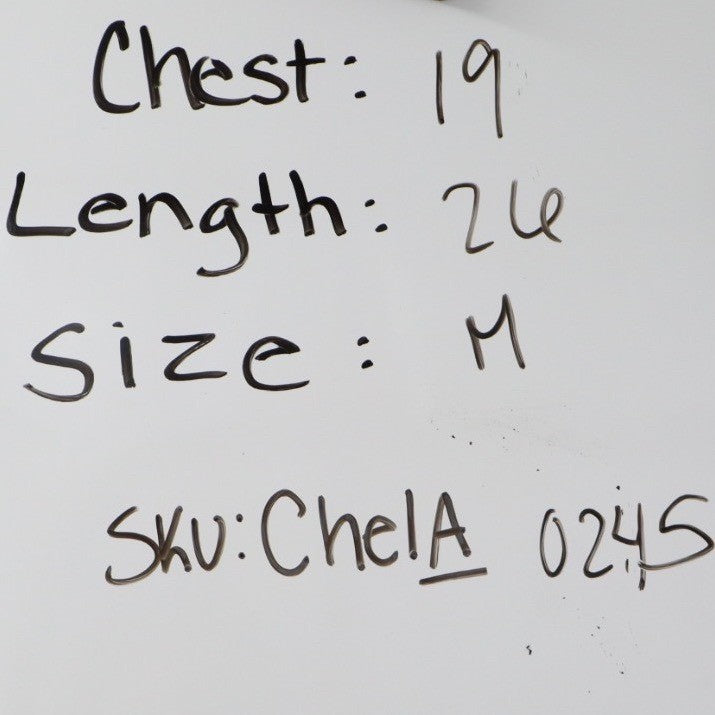 Chest: 19
Length: 26
Size: M
SKU: ChelA 0245